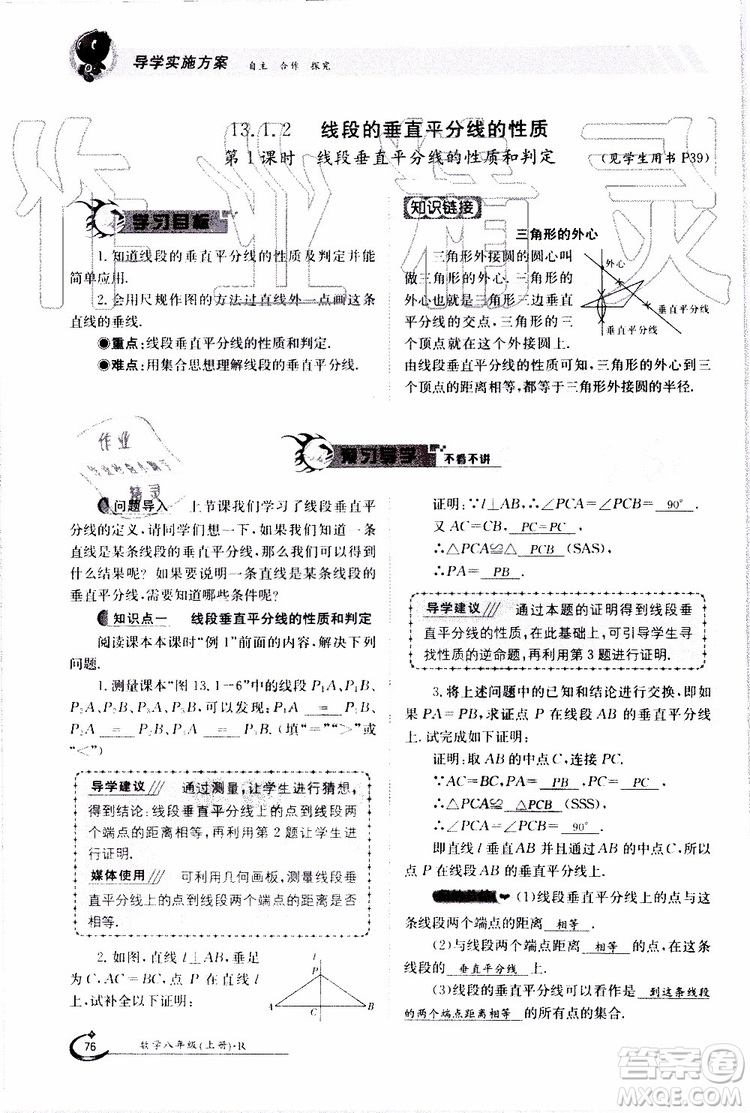 导学实施方案 自主 合作 探究
13.1.2 线段的垂直平分线的性质
第1课时 线段垂直平分线的性质和判定 (见学生用书 P39)
学习目标
1.知道线段的垂直平分线的性质及判定并能
简单应用.
2.会用尺规作图的方法过直线外一点画这条
直线的垂线.
◉重点:线段的垂直平分线的性质和判定.
◉难点:用集合思想理解线段的垂直平分线.
知识链接
三角形的外心
三角形外接圆的圆心叫
做三角形的外心,三角形的外
心也就是三角形三边垂直平
分线的交点,三角形的三个
顶点就在这个外接圆上.
由线段垂直平分线的性质可知,三角形的外心到三
个顶点的距离相等,都等于三角形外接圆的半径.
外心
垂直平分线
垂直平分线
预习导学 不看不讲
问题导入 上节课我们学习了线段垂直平
分线的定义,请同学们想一下,如果我们知道一条
直线是某条线段的垂直平分线,那么我们可以得到
什么结果呢?如果要说明一条直线是某线段的垂
直平分线,需要知道哪些条件呢?
知识点一 线段垂直平分线的性质和判定
阅读课本本课时“例1”前面的内容,解决下列
问题.
1.测量课本“图13.1-6”中的线段P₁A、P₁B、
P₂A、P₂B、P₃A、P₃B的长度,可以发现:P₁A = 
P₁B,P₂A = P₂B,P₃A = P₃B.(填“=”“>”或
“<”)
导学建议 通过测量,让学生进行猜想,
得到结论:线段垂直平分线上的点到线段两
个端点的距离相等,再利用第2题让学生进
行证明.
媒体使用 可利用几何画板,测量线段垂
直平分线上的点到这条线段的两个端点的距
离相等.
2.如图,直线l⊥AB,垂足
为C,AC=BC,点P在l
上,试补全以下证明:
l
P
A
C
B
证明:∵l⊥AB,∴∠PCA=∠PCB= 90° .
又AC=CB,PC= PC ,
∴△PCA≌△ PCB (SAS),
∴PA= PB .
导学建议 通过本题的证明得到线段垂
直平分线的性质,在此基础上,可引导学生寻
找性质的逆命题,再利用第3题进行证明.
3.将上述问题中的已知和结论进行交换,即已知
PA=PB,求证点P在线段AB的垂直平分线
上.试完成如下证明:
证明:取AB的中点C,连接PC.
∵AC=BC,PA= PB ,PC= PC ,
∴△PCA≌△ PCB (SSS),
∴∠PCA=∠PCB= 90° .
即直线PC垂直AB并且通过AB的中点C,所以
点P在线段AB的垂直平分线上.
(1)线段垂直平分线上的点与这
条线段两个端点的距离 相等 .
(2)与线段两个端点距离相等的点,在这条
线段的 垂直平分线 上.
(3)线段的垂直平分线可以看作是 到这条线段
的两个端点距离相等 的所有点的集合.
76 数学八年级(上册)·R
作业精灵
作业
精灵
答案圈
MXQE.COM